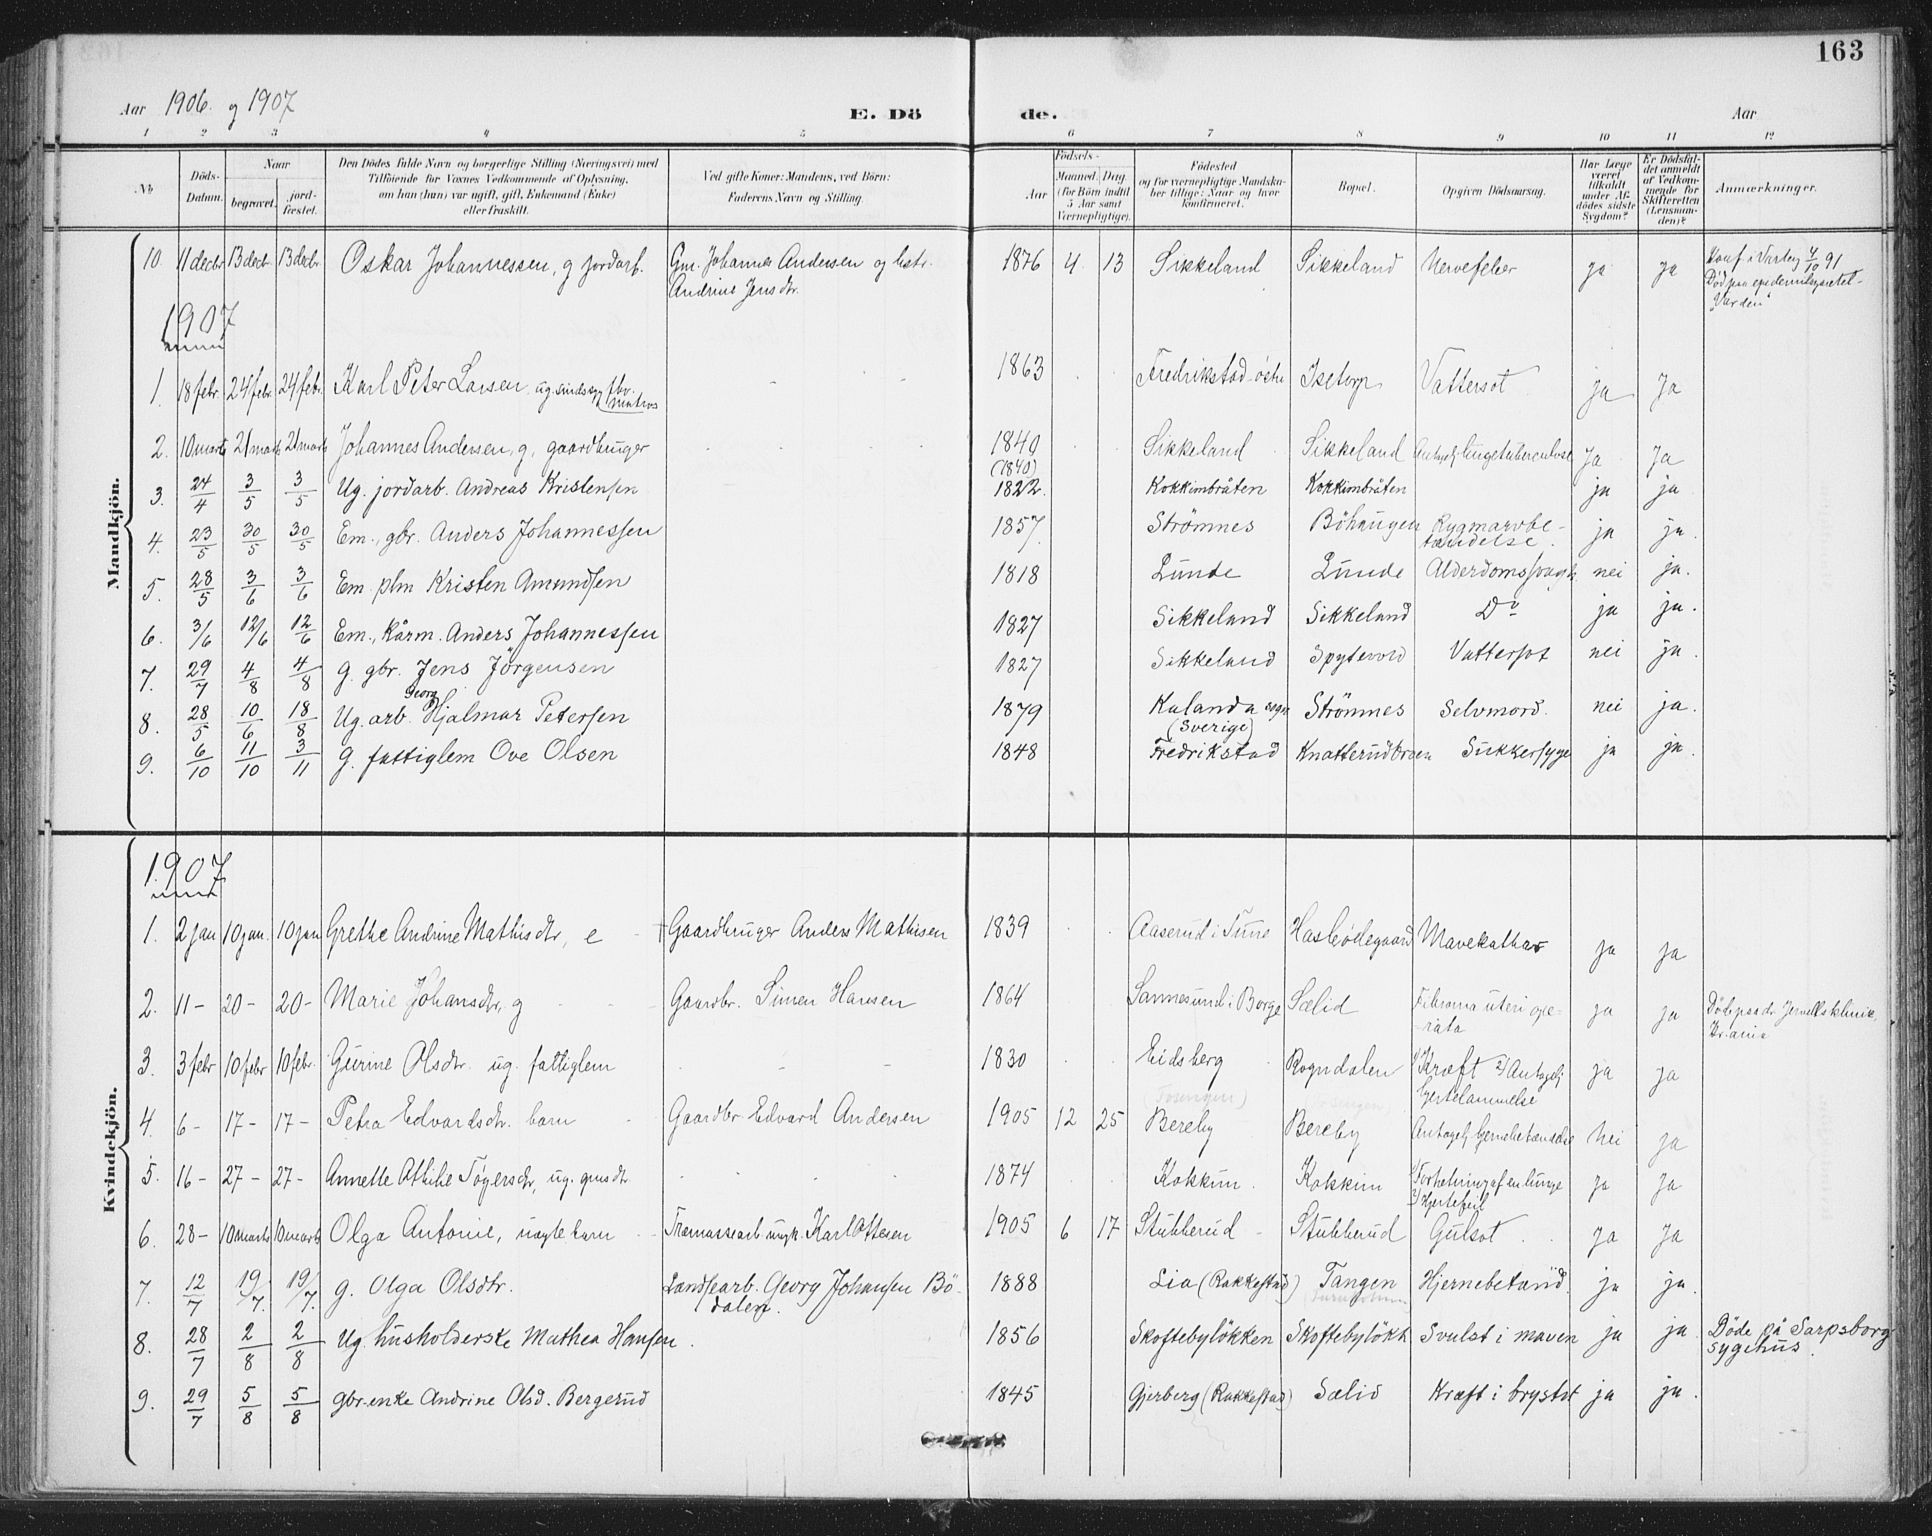 163
Aar 1906. og 1907
E. Dö de.
Aar
1 2 3 4 5 6 7 8 9 10 11 12
No
Döds-Datum.
Naar
begravet.
jord-fæstet.
Den Dödes fulde Navn og borgerlige Stilling (Næringsvei) med
Tilföiende for Voxnes Vedkommende af Oplysning,
om han (hun) var ugift, gift, Enkemand (Enke)
eller fraskilt.
Ved gifte Koner: Mandens, ved Börn:
Faderens Navn og Stilling.
Födsels-
Aar
Maaned. Dag.
(for Börn indtil
5 Aar samt
Værnepligtige).
Födested
og for værnepligtige Mandska-
ber tillige: Naar og hvor
konfirmeret.
Bopæl.
Opgiven Dödsaarsag.
Har Læge
været
tilkaldt
under Af-
dödes sidste
Sygdom?
Er Dödsfal-
det anmeldt
af Vedkom-
mende for
Skifteretten
(Lensman-
den)?
Anmærkninger.
Mandkjön.
10. 11 decbr 13 decb. 13 decbr. Oskar Johannessen, g jordarb. Gm. Johannes Andersen og hstr. 1876 4 13 Sikkeland Sikkeland Nervefeber ja ja Konf i Varteig 4/10 91
Andrine Jensdtr. Död paa epidemisygehuset
"Varden"
1907
1. 18 febr. 24 febr. 24 febr. Karl Peter Larsen, ug. sindssyg fhv. matros 1863 Fredrikstad östre Isetorp Vattersot ja Ja
2. 10 marts 21 marts 21 marts Johannes Andersen, g, gaardbruger 1840 Sikkeland Sikkeland Antagelj lungetuberculose Ja Ja
3. 24/4 3/5 3/5 Ug. jordarb. Andreas Kristensen (1840) 1822. Kokkimbråten Kokkimbråten ja ja
4. 23/5 30/5 30/5 Em., gbr. Anders Johannessen 1857. Strömnes Böhaugen Rygmarvbe-
tændelse. ja ja.
5. 28/5 3/6 3/6 Em. plm Kristen Amundsen 1818 Lunde Lunde Alderdomssvagh. nei ja.
6. 3/6 12/6 12/6 Em., kårm. Anders Johannessen 1827 Sikkeland Sikkeland Do ja ja.
7. 29/7 4/8 4/8 g. gbr. Jens Jörgensen 1827 Sikkeland Spytevold Vattersot nei ja.
8. 28/5 10/6 18/8 Ug. arb. Georg Hjalmar Petersen 1879 Kalanda sogn (Sverige) Strömnes Selvmord. nei ja.
9. 6/10 11/10 3/11 g. fattiglem Ove Olsen 1848 Fredrikstad Knatterudbroen Sukkersyge ja ja.
Kvindekjön.
1907
1. 2 jan 10 jan. 10 jan Grethe Andrine Mathisdtr, e - † Gaardbruger Anders Mathisen 1839 Aaserud i Tune Haslebödegaard Mavekathar ja ja
2. 11 - 20 - 20 - Marie Johansdtr, g Gaardbr. Simen Hansen 1864 Sannesund i Borge Sælid Fibroma uteri ope-
rata ja ja Döde paa dr Jervells klinik,
Kr.ania
3. 3 febr 10 febr 10 febr. Gurine Olsdtr. ug. fattiglem 1830 Eidsberg Rogndalen 1) Kræft 2) Antagelj
Hjertelammelse ja ja
4. 6 - 17 - 17 - Petra Edvardsdtr. barn Gaardbr Edvard Andersen 1905 12 25 Bereby Bereby Antagelj hjernebetændelse Nei ja
5. 16 - 27 - 27 - Annette Othilie Töyersdtr, ug. gmsdtr. 1874 Kokkim. Kokkim 1) Fortætning af en lunge
2) Hjertefeil ja Ja
6. 28 - 10 marts 10 marts Olga Antonie, uægte barn Træmassearb ungk. Karl Ottesen 1905 6 17 Stubberud Stubberud Gulsot ja Ja
7. 12/7 19/7. 19/7. g. Olga Olsdtr. Landsearb. Georg Johansen Bö-
dalen. 1888 Lia (Rakkestad) Tangen Hjernebetænd. ja ja.
8. 28/7 2/8 2/8 Ug. husholderske Mathea Hansen. 1856 Skoftebylökken Skoftebylökk. Svulst i maven ja ja. Döde på Sarpsborg
sygehus.
9. 29/7 5/8 5/8 gbr-enke Andrine Olsd. Bergerud 1845 Gjerberg (Rakkestad) Sælid Kræft i brystet ja ja.